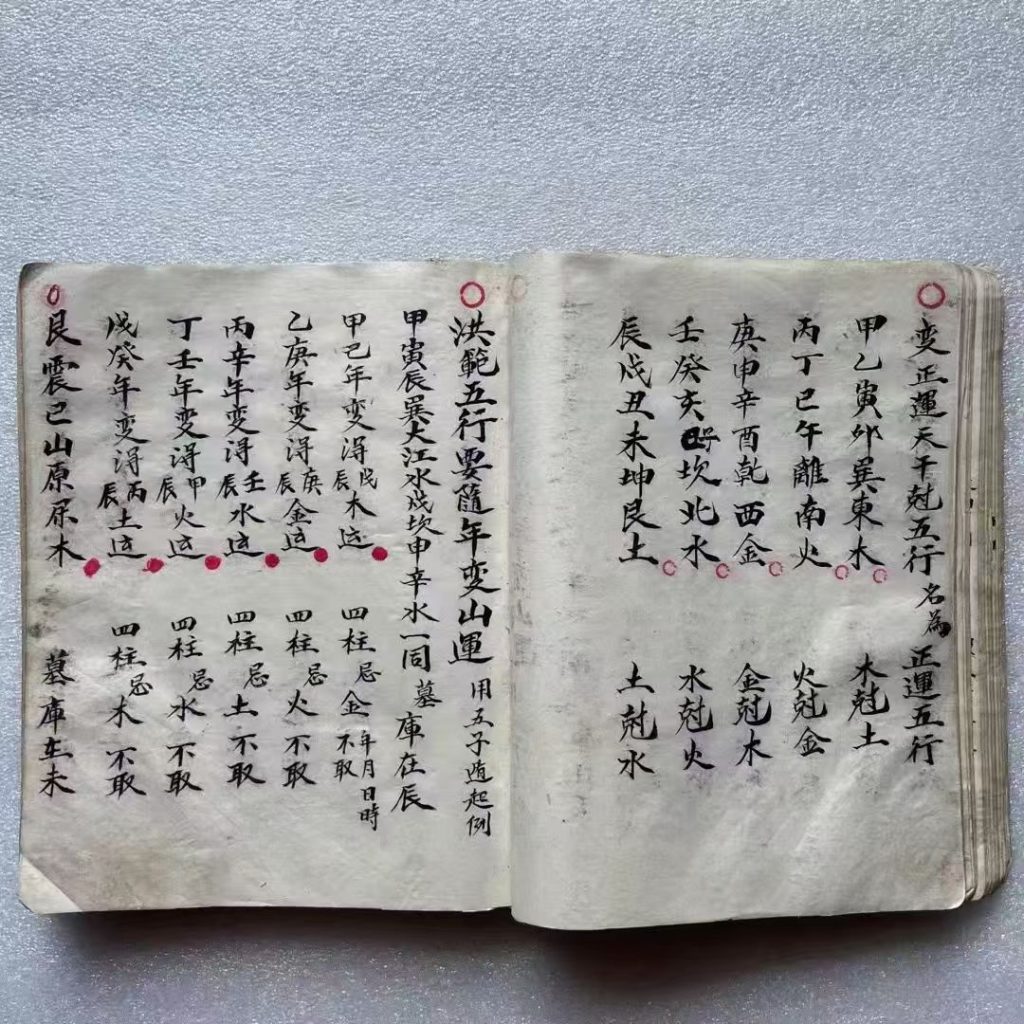 变正運天干尅五行名為正運五行
甲乙寅卯巽東木 木尅土
丙丁巳午離南火 火尅金
庚申辛酉乾西金 金尅木
壬癸亥子坎北水 水尅火
辰戌丑未坤艮土 土尅水
洪範五行要隨年变山運 用五子遁起例
甲寅辰巽大江水戌坎申辛水一同 墓庫在辰
甲己年变得戊辰木运 四柱忌金不取年月日時
乙庚年变得庚辰金运 四柱忌火不取
丙辛年变得壬辰水运 四柱忌土不取
丁壬年变得甲辰火运 四柱忌水不取
戊癸年变得丙辰土运 四柱忌木不取
艮震巳山原屬木 墓庫在未